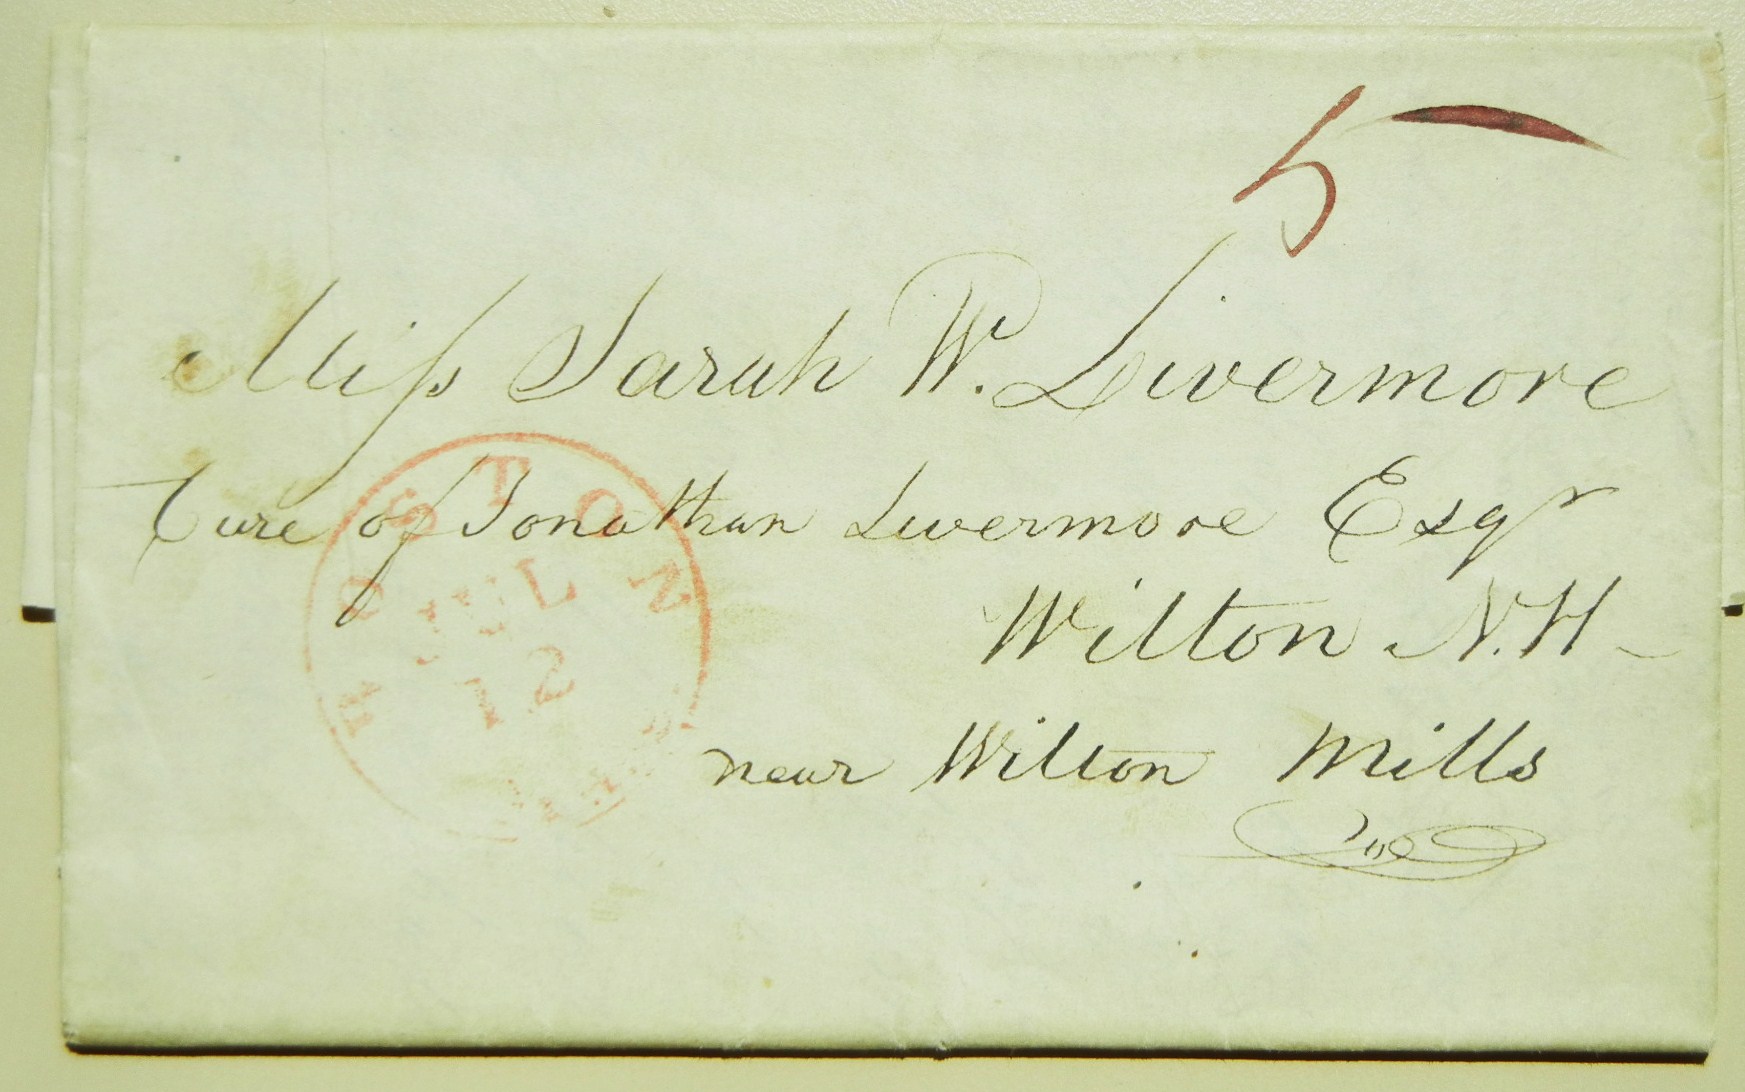 5
Miſs Sarah W. Livermore
Care of Jonathan Livermore Esqr
Wilton N.H
near Wilton Mills
BOSTON
JUL
12